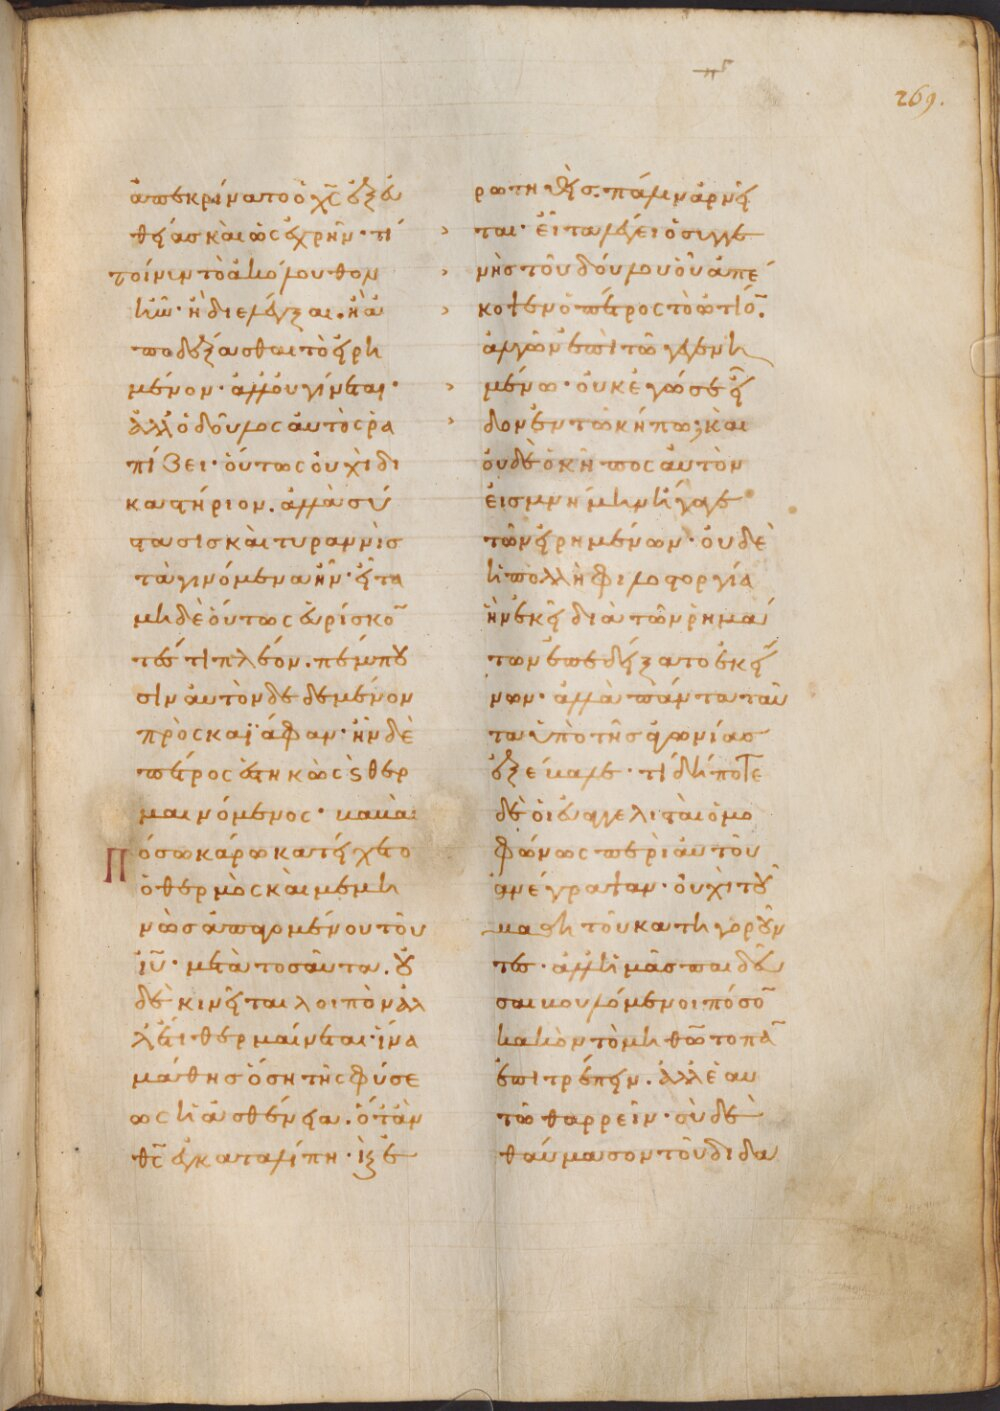 πγ
269.
ἀπεκρίνατο ὁ χ̅ς ἐξευ
θείας καὶ ὡς ἐχρῆν· τί
τοίνυν τὸ ἀκόλουθον
ἦν· ἢ διελέγξαι. ἢ ἀ
ποδέξασθαι τὸ εἰρη
μένον· ἀλλ' οὐ γίνεται·
ἀλλ' ὁ δοῦλος αὐτὸς ῥα
πίζει· οὕτως οὐχὶ δι
καστήριον. ἀλλὰ σύ
στασις καὶ τυραννὶς
τὰ γινόμενα ἦν· εἶτα
μηδὲ οὕτως εὑρίσκο̅
τές τι πλέον. πέμπου
σιν αὐτὸν δεδεμένον
πρὸς καϊάφαν· ἦν δὲ
πέτρος ἑστηκὼς ϗ θερ
μαινόμενος· βαβαί·
Πόσω κάρω κατείχετο
ὁ θερμὸς καὶ μεμη
νὼς ἀπαγομένου τοῦ
ἰ̅υ̅· μετὰ τοσαῦτα. οὐ
δὲ κινεῖται λοιπὸν ἀλ
λ' ἔτι θερμαίνεται· ἵνα
μάθης ὅση τῆς φύσε
ως ἡ ἀσθένεια. ὅταν
θ̅ς ἐγκαταλίπη· ἐξε
ρωτηθεὶς. πάλιν ἀρνεῖ
ται· εἶτα λέγει ὁ συγγε
νὴς τοῦ δούλου οὗ ἀπέ
κοψεν ὁ πέτρος τὸ ὠτίο̅.
ἀλγῶν ἐπὶ τῶ γεγενη
μένω· οὐκ ἐγώ σε εἶ
δον ἐν τῶ κήπω; καὶ
οὐδὲ ὁ κῆπος αὐτὸν
εἰς μνήμην ἤγαγε
τῶν εἰρημένων· οὐδὲ
ἡ πολλὴ φιλοστοργία
ἣν ἐκεῖ διὰ τῶν ῥημά
των ἐπεδείξατο ἐκεί
νων· ἀλλὰ πάντα ταῦ
τα ὑπὸ τῆς ἀγωνίας
ἐξέβαλε· τί δήποτε
δὲ οἱ εὐαγγελισταὶ ὁμο
φώνως περὶ αὐτοῦ
ἀνέγραψαν· οὐχὶ τοῦ
μαθητοῦ κατηγοροῦν
τες· ἀλλ' ἡμᾶς παιδεῦ
σαι βουλόμενοι πόσο̅
κακὸν τὸ μὴ θ̅ω̅ τὸ πᾶ̅
ἐπιτρέπειν. ἀλλ' ἑαυ
τῶ θαρρεῖν· σὺ δὲ
θαύμασον τοῦ διδα